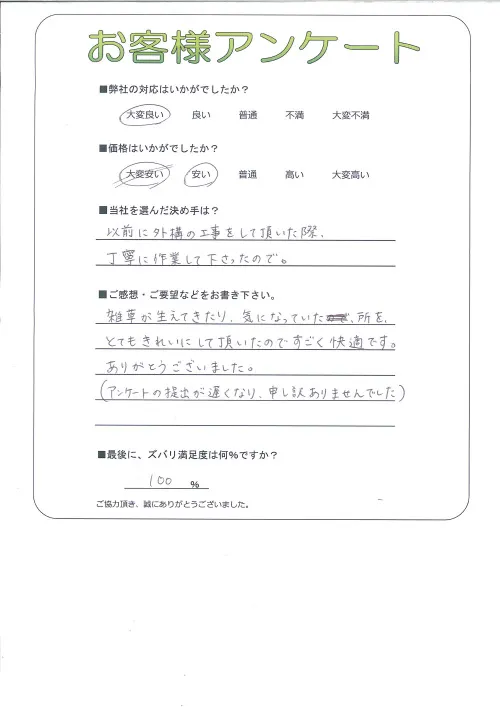 お客様アンケート
■弊社の対応はいかがでしたか？
大変良い 良い 普通 不満 大変不満
■価格はいかがでしたか？
大変安い 安い 普通 高い 大変高い
■当社を選んだ決め手は？
以前に外構の工事をして頂いた際、
丁寧に作業して下さったので。
■ご感想・ご要望などをお書き下さい。
雑草が生えてきたり、気になっていた、所を、
とてもきれいにして頂いたのですごく快適です。
ありがとうございました。
(アンケートの提出が遅くなり、申し訳ありませんでした)
■最後に、ズバリ満足度は何%ですか？
100 %
ご協力頂き、誠にありがとうございました。